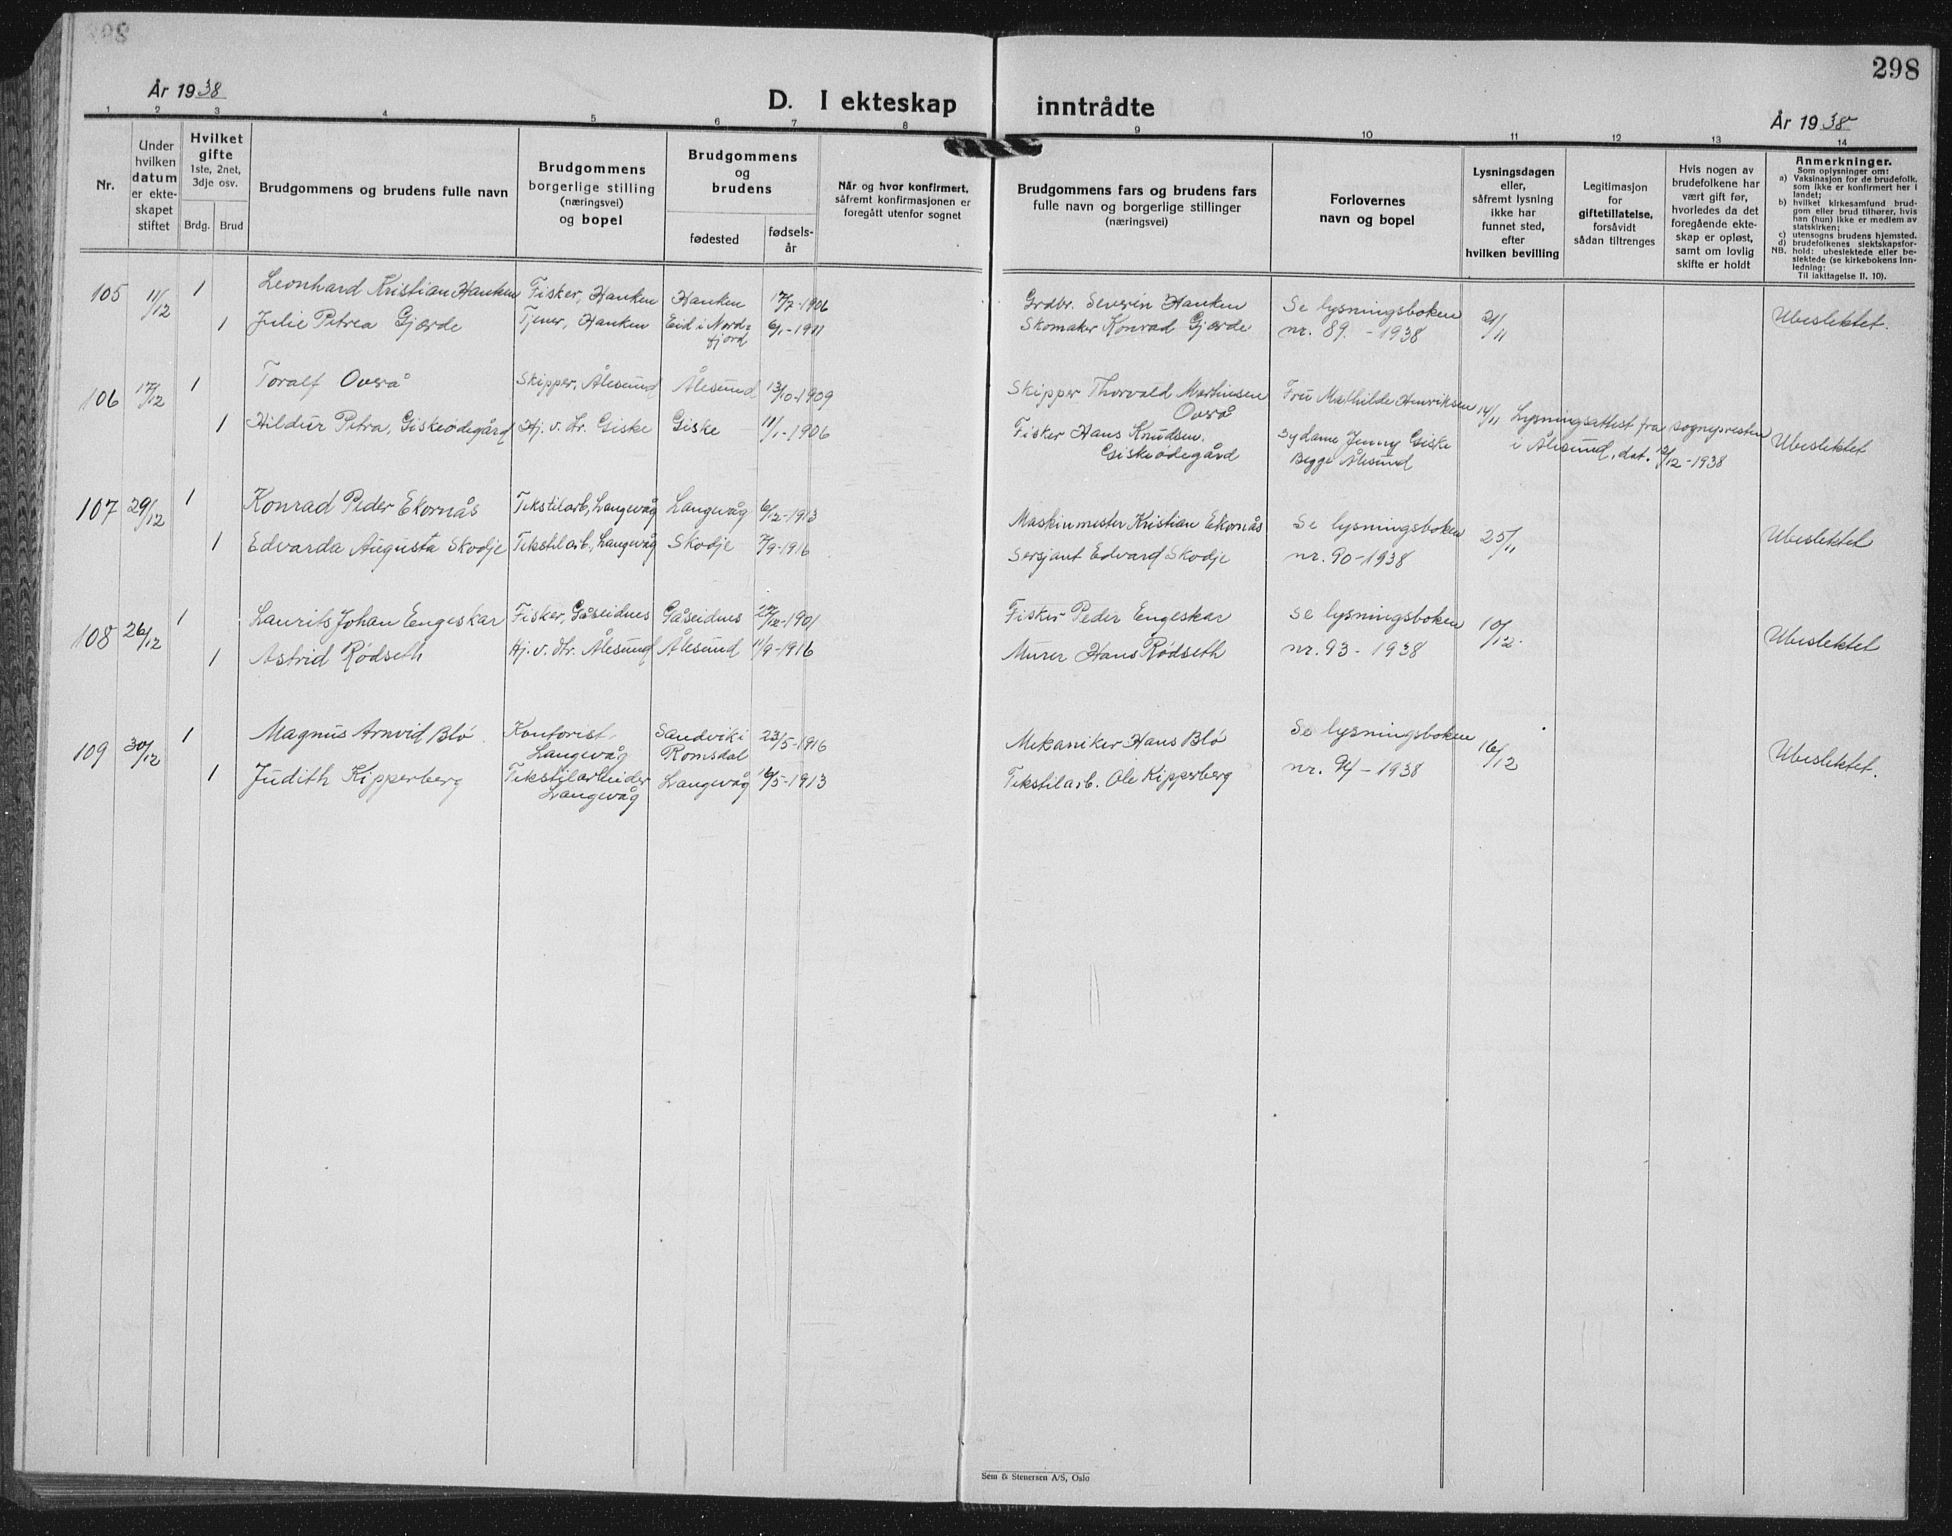 298
År 1938
D. I ekteskap inntrådte
År 1938
1 2 3 4 5 6 7 8 9 10 11 12 13 14
Nr.
Under hvilken datum er ekteskapet stiftet
Hvilket gifte 1ste, 2net, 3dje osv.
Brdg. Brud
Brudgommens og brudens fulle navn
Brudgommens borgerlige stilling (næringsvei) og bopel
Brudgommens og brudens
fødested
fødselsår
Når og hvor konfirmert, såfremt konfirmasjonen er foregått utenfor sognet
Brudgommens fars og brudens fars fulle navn og borgerlige stillinger (næringsvei)
Forlovernes navn og bopel
Lysningsdagen eller, såfremt lysning ikke har funnet sted, efter hvilken bevilling
Legitimasjon for giftetillatelse, forsåvidt sådan tiltrenges
Hvis nogen av brudefolkene har vært gift før, hvorledes da det foregående ekteskap er opløst, samt om lovlig skifte er holdt
Anmerkninger.
Som oplysninger om:
a) Vaksinasjon for de brudefolk, som ikke er konfirmert her i landet;
b) hvilket kirkesamfund brudgom eller brud tilhører, hvis han (hun) ikke er medlem av statskirken;
c) utensogns brudens hjemsted.
d) brudefolkenes slektskapsforhold:
NB. ubeslektede eller beslektede (se kirkebokens innledning:
Til iakttagelse II. 10).
105 11/12 1 Leonhard Kristian Hanken Fisker, Hanken Hanken 17/7-1906 Grdbr. Severin Hanken Se lysningsboken 21/11 Ubeslektet.
1 Julie Petrea Gjærde Tjener, Hanken Eid i Nordfjord 6/1-1911 Skomaker Konrad Gjærde nr. 89. - 1938
106 17/12 1 Toralf Overå Skipper, Ålesund Ålesund 13/10-1909 Skipper Thorvald Martinsen Overå Fru Mathilde Henriksen 14/11 Lysningsattest fra sognepresten
1 Hildur Petra, Giskeødegård Hj. v. Hr. Giske Giske 11/1-1906 Fisker Hans Knudsen, Giskeødegård Sydame Jenny Giske Begge Ålesund i Ålesund, dat. 12/12-1938 Ubeslektet
107 29/12 1 Konrad Peder Ekornås Tekstilarb, Langevåg Langevåg 6/12-1913 Maskinmester Kristian Ekornås Se lysningsboken 25/11 Ubeslektet
1 Edvarda Augusta Skodje Tekstilarb., Langevåg Skodje 7/9-1916 Sersjant Edvard Skodje nr. 90-1938
108 26/12 1 Laurits Johan Engeskar Fisker, Gåseidnes Gåseidnes 27/12-1901 Fisker Peder Engeskar Se lysningsboken 10/12. Ubeslektet
1 Astrid Rødseth Hj. v. Hr. Ålesund Ålesund 11/9-1916 Murer Hans Rødseth nr. 93 - 1938
109 30/12 1 Magnus Arnvid Blø Kontorist, Langevåg Sandvik i Romsdal 23/5-1916 Mekaniker Hans Blø Se lysningsboken 16/12 Ubeslektet.
1 Judith Kipperberg Tekstilarbeider Langevåg Langevåg 16/5-1913 Tekstilarb. Ole Kipperberg nr. 94 - 1938
Sem & Stenersen A/S, Oslo